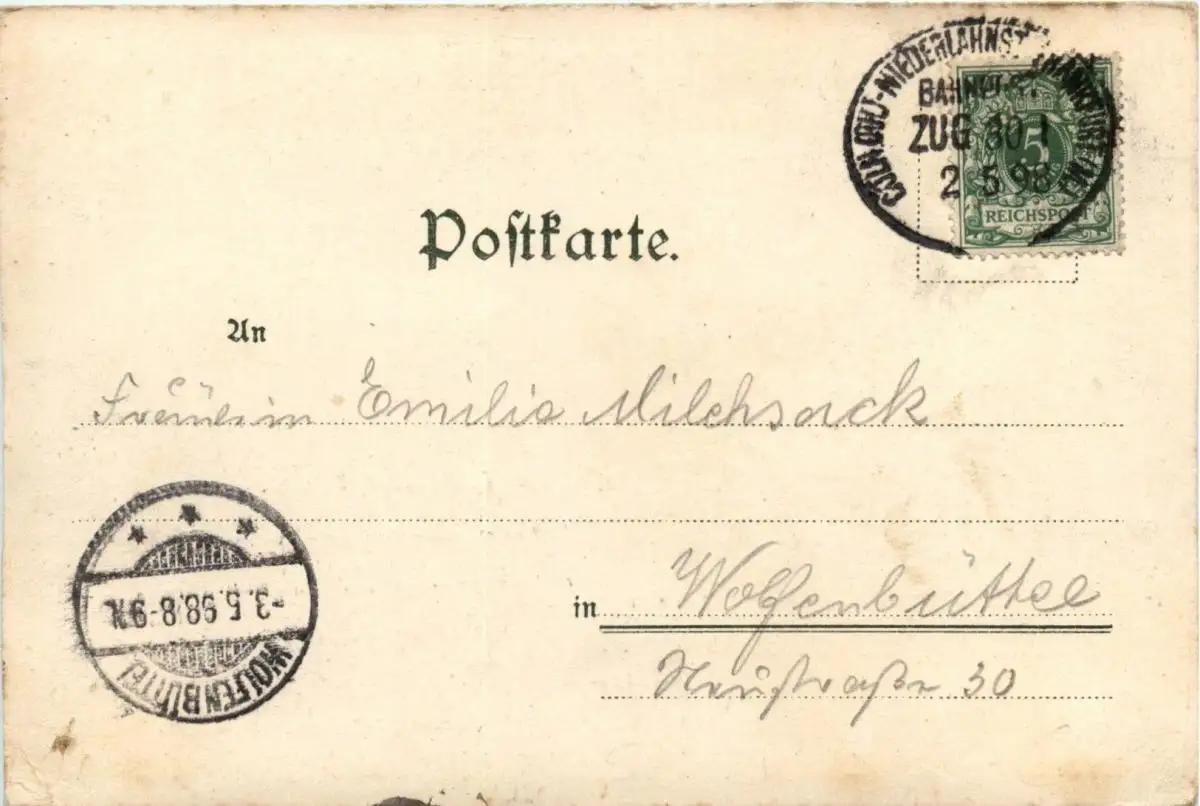 CÖLN (DEUTZ)-NIEDERLAHNST. FRANKFURT (M.)
BAHNPOST
ZUG 30 I
2 5 98
5
REICHSPOST
Postkarte.
An
Fräulein Emilie Milchsack
in Wolfenbüttel
Neustraße 30
-3.5.98.8-9V.
WOLFENBÜTTEL